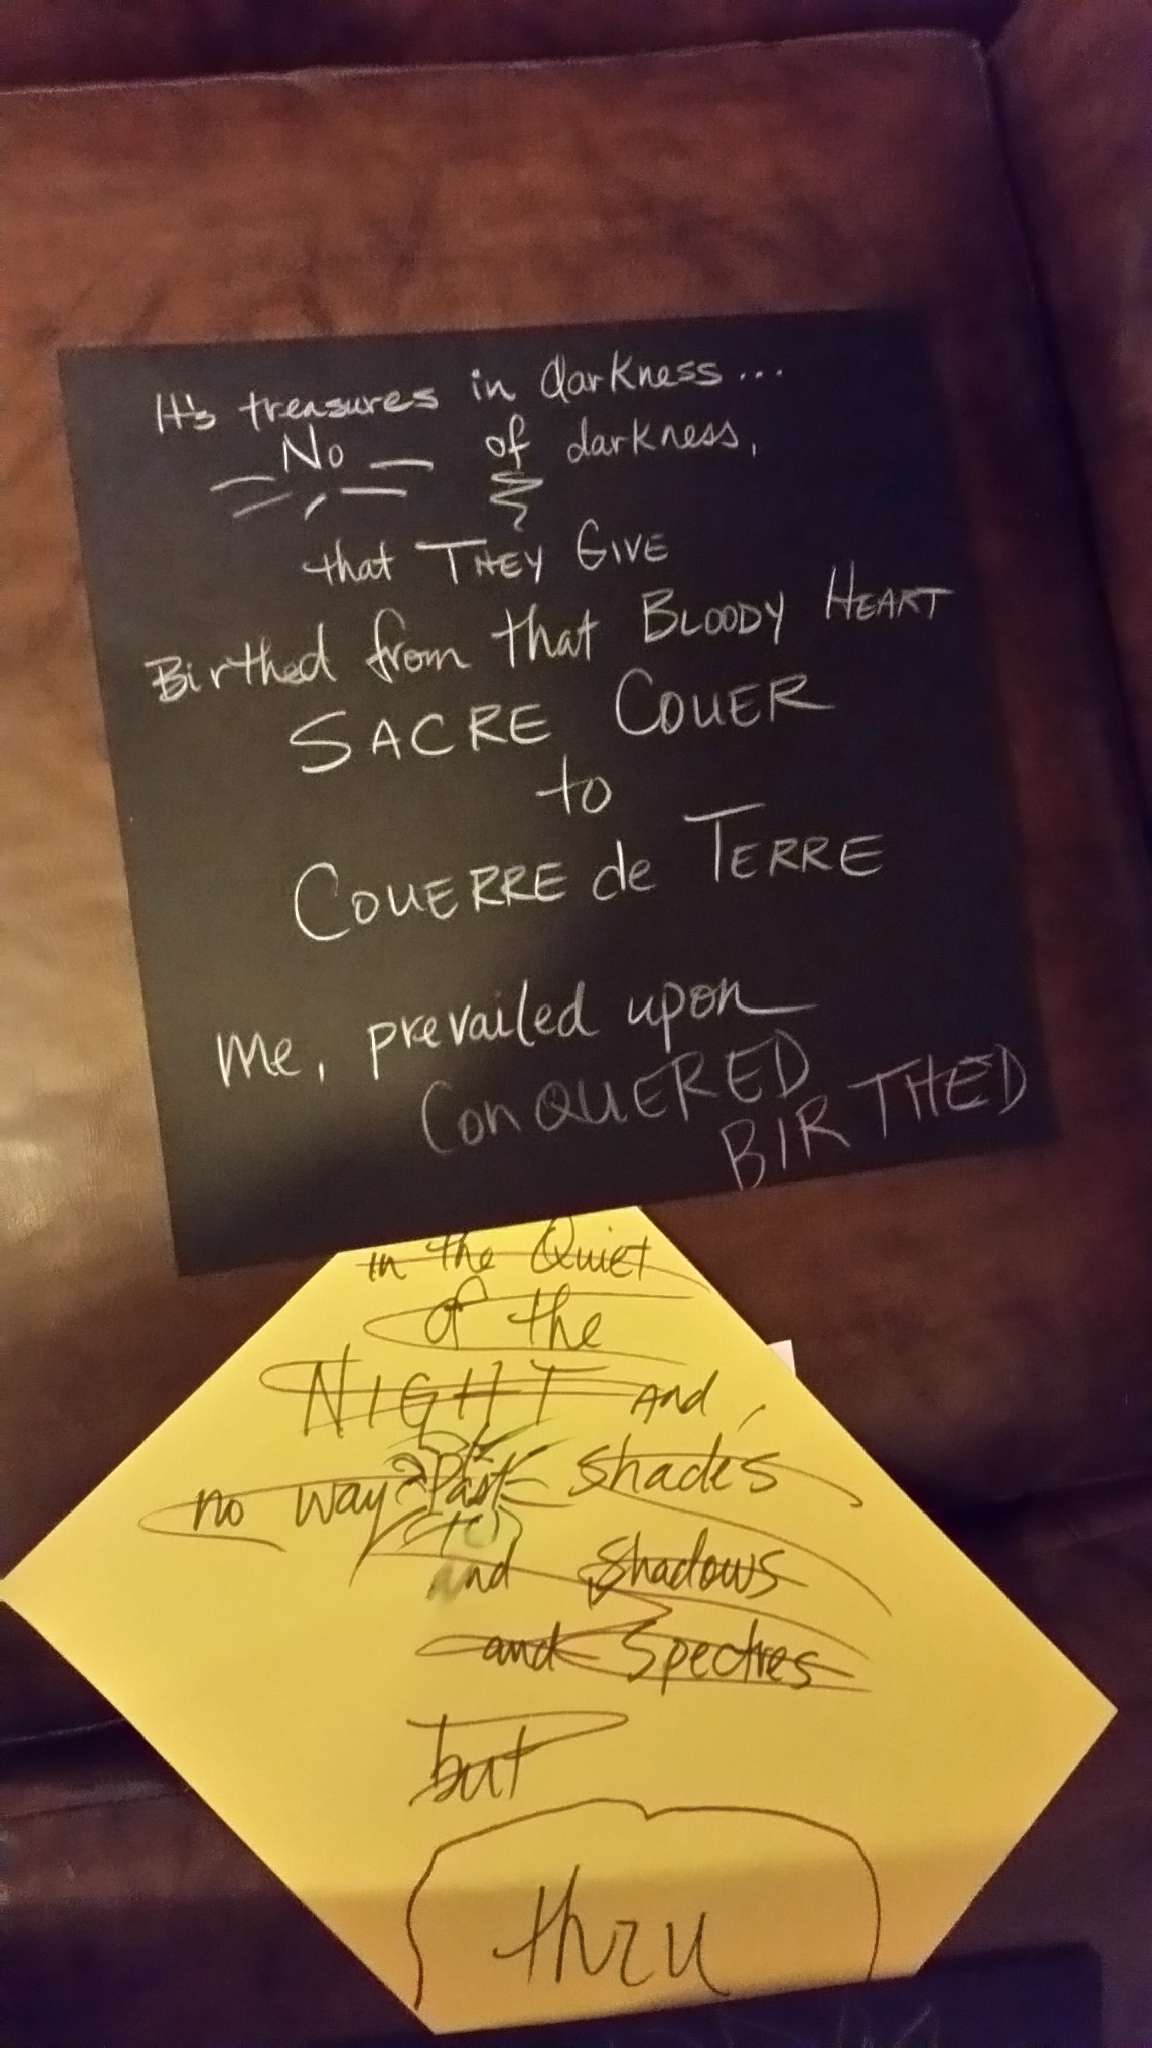 It's treasures in darkness...
No of darkness,
that THEY GIVE
Birthed from that BLOODY HEART
SACRE COUER
to
COUERRE de TERRE
me, prevailed upon
CONQUERED
BIRTHED
in the Quiet
of the
NIGHT and,
no way Past shades
to
and shadows
and Spectres
but
thru